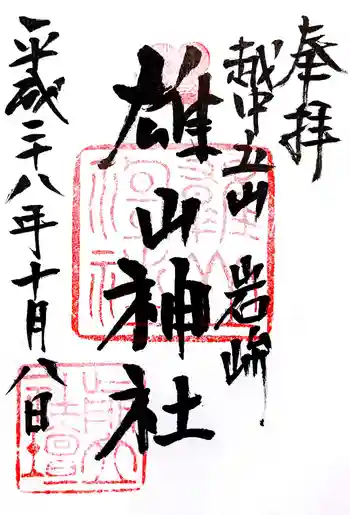 奉拝
越中立山 岩峅
雄山神社
平成二十八年十月八日
前立
社壇